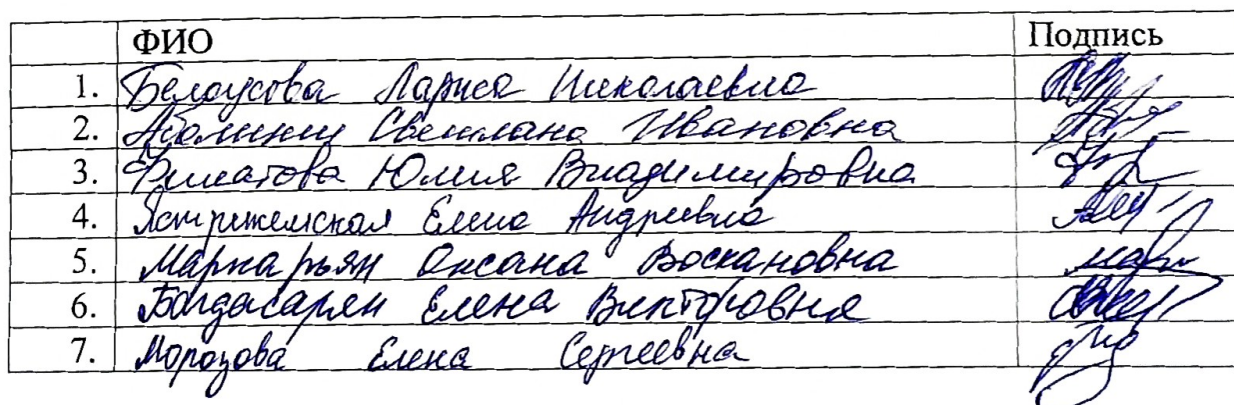 ФИО Подпись
1. Белоусова Лариса Николаевна
2. Светлана Ивановна
3. Филатова Юлия Владимировна
4. Ястржемская Елена Андреевна
5. Маркарьян Оксана Восkановна
6. Багдасарян Елена Викторовна
7. Морозова Елена Сергеевна